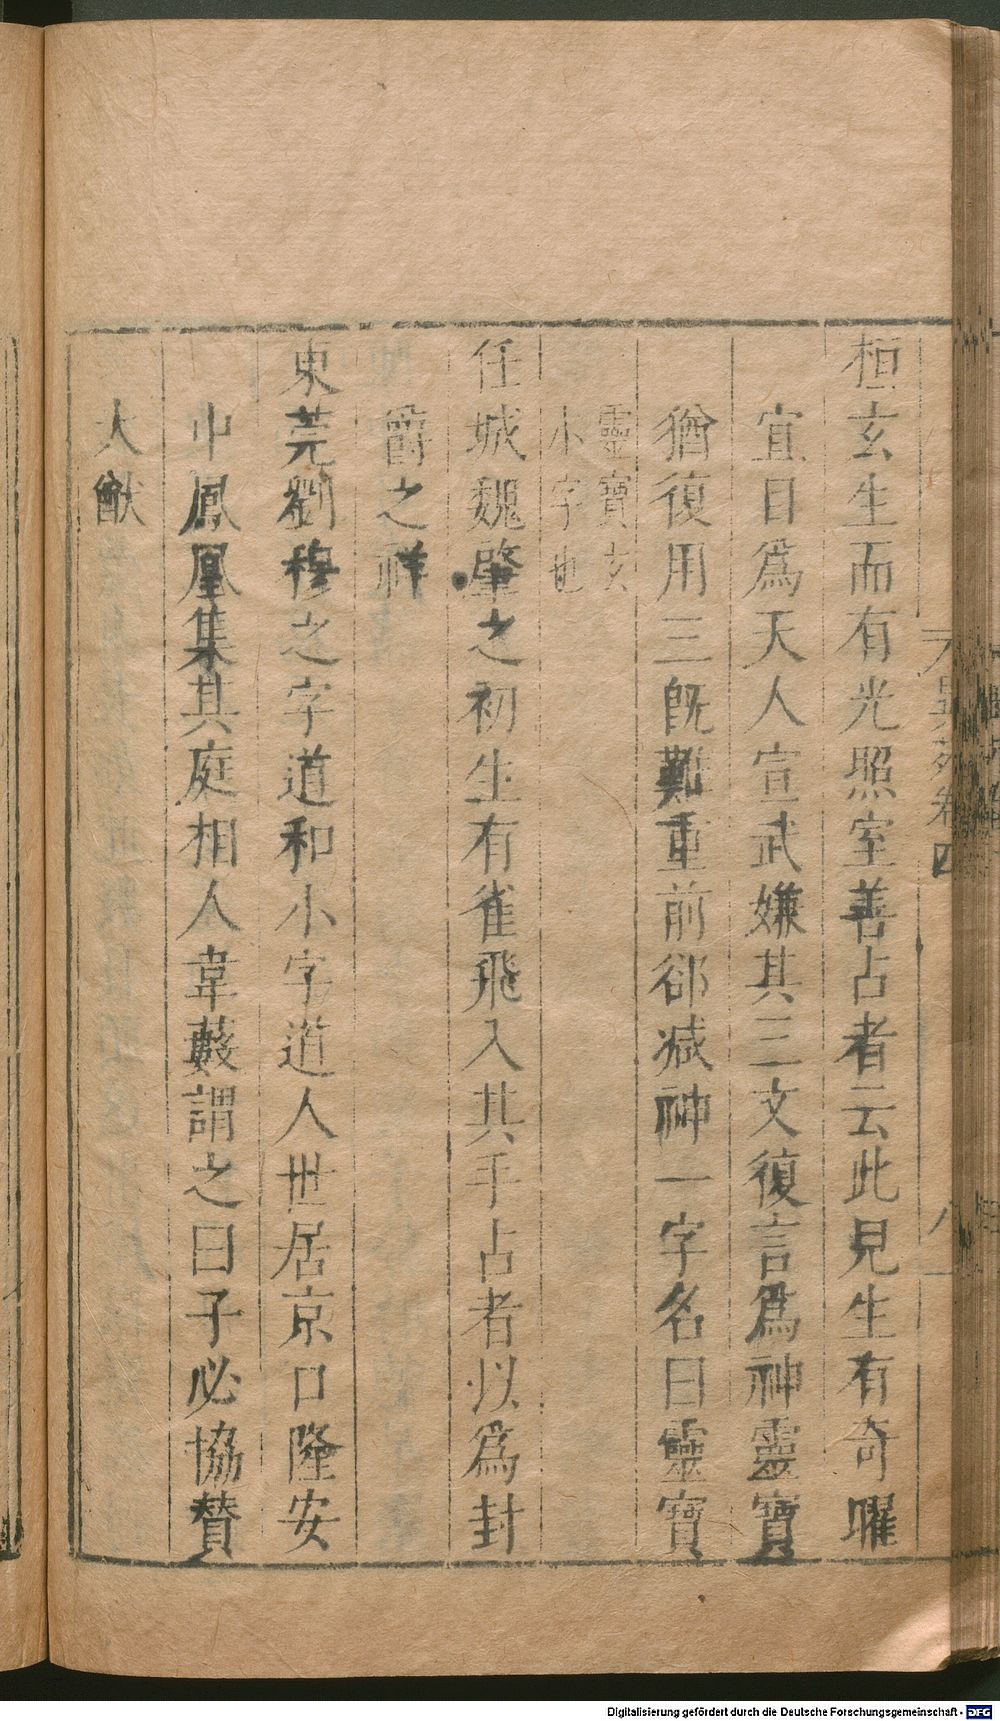 桓玄生而有光照室善占者云此見生有奇曜
宜目為天人宣武嫌其三文復言為神靈寶
猶復用三既難重前卻減神一字名曰靈寶
靈寶玄
小字也
任城魏肇之初生有雀飛入其手占者以為封
爵之祥
東莞劉穆之字道和小字道人世居京口隆安
中鳳凰集其庭相人韋藪謂之曰子必協贊
大猷
異苑卷四
八
Digitalisierung gefördert durch die Deutsche Forschungsgemeinschaft - DFG